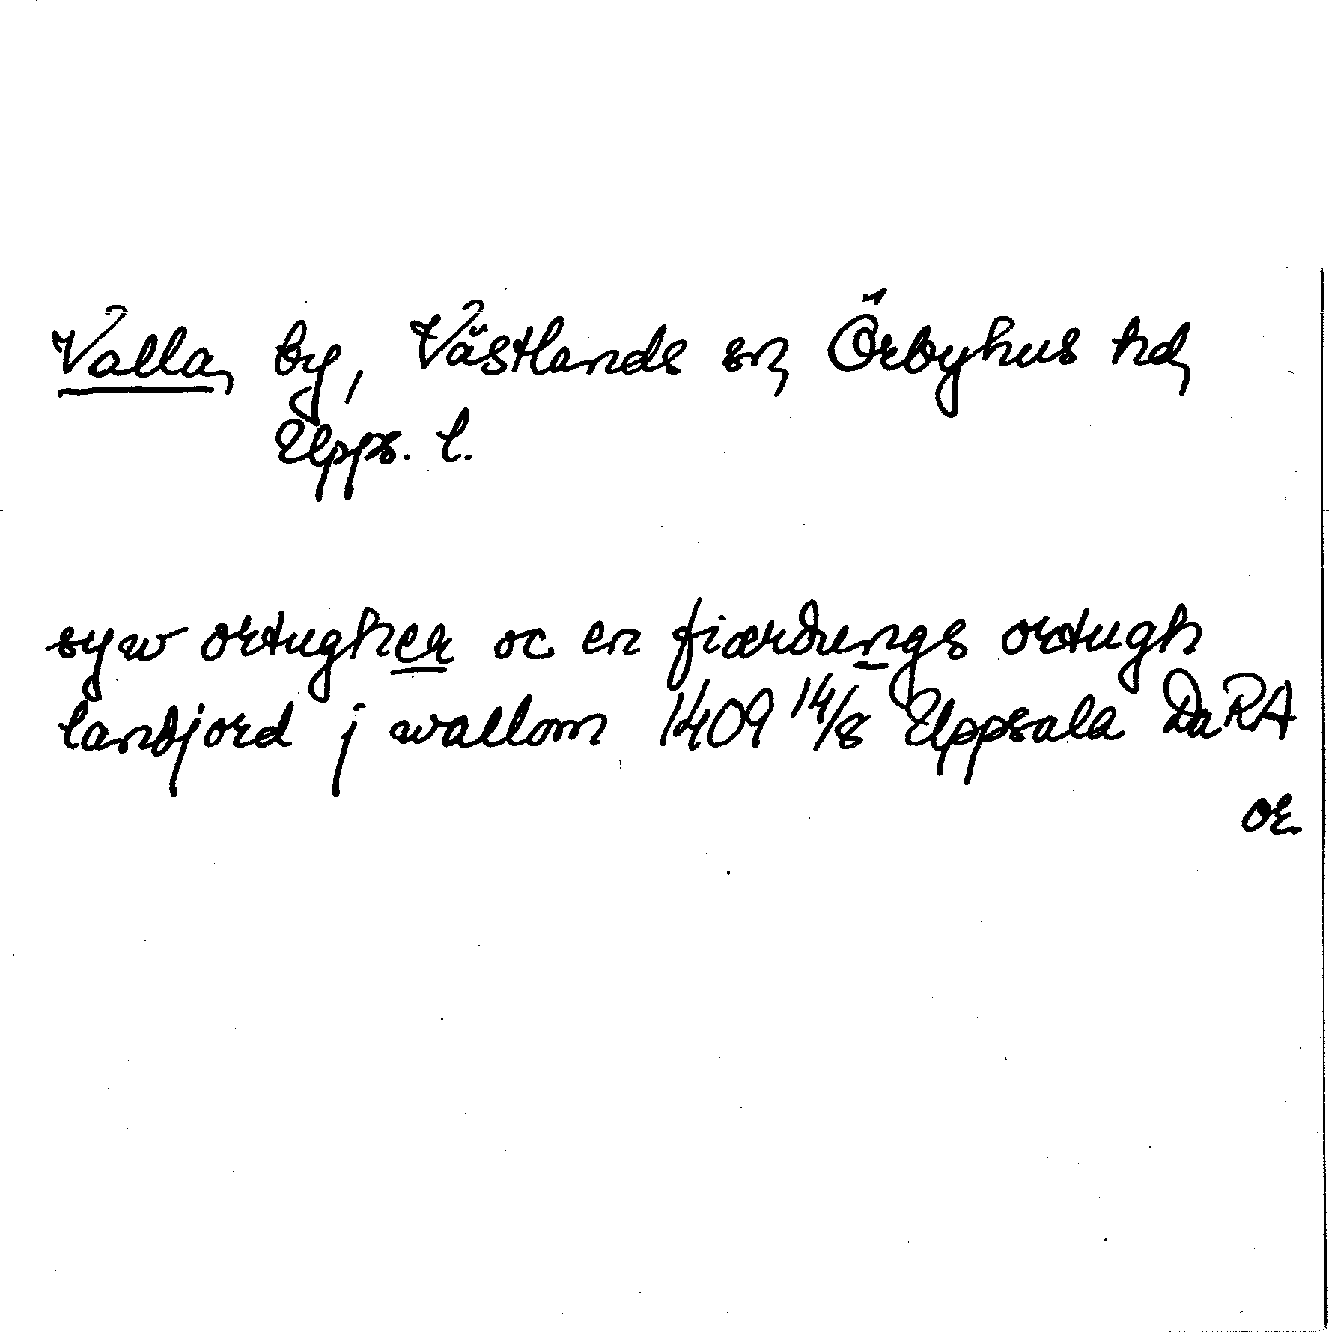 Valla, by, Västlands sn, Örbyhus hd,
Upps. l.
syw ortugher oc en fiærdungs ortugh
landjord j wallom 1409 14/8 Uppsala Da RA
or